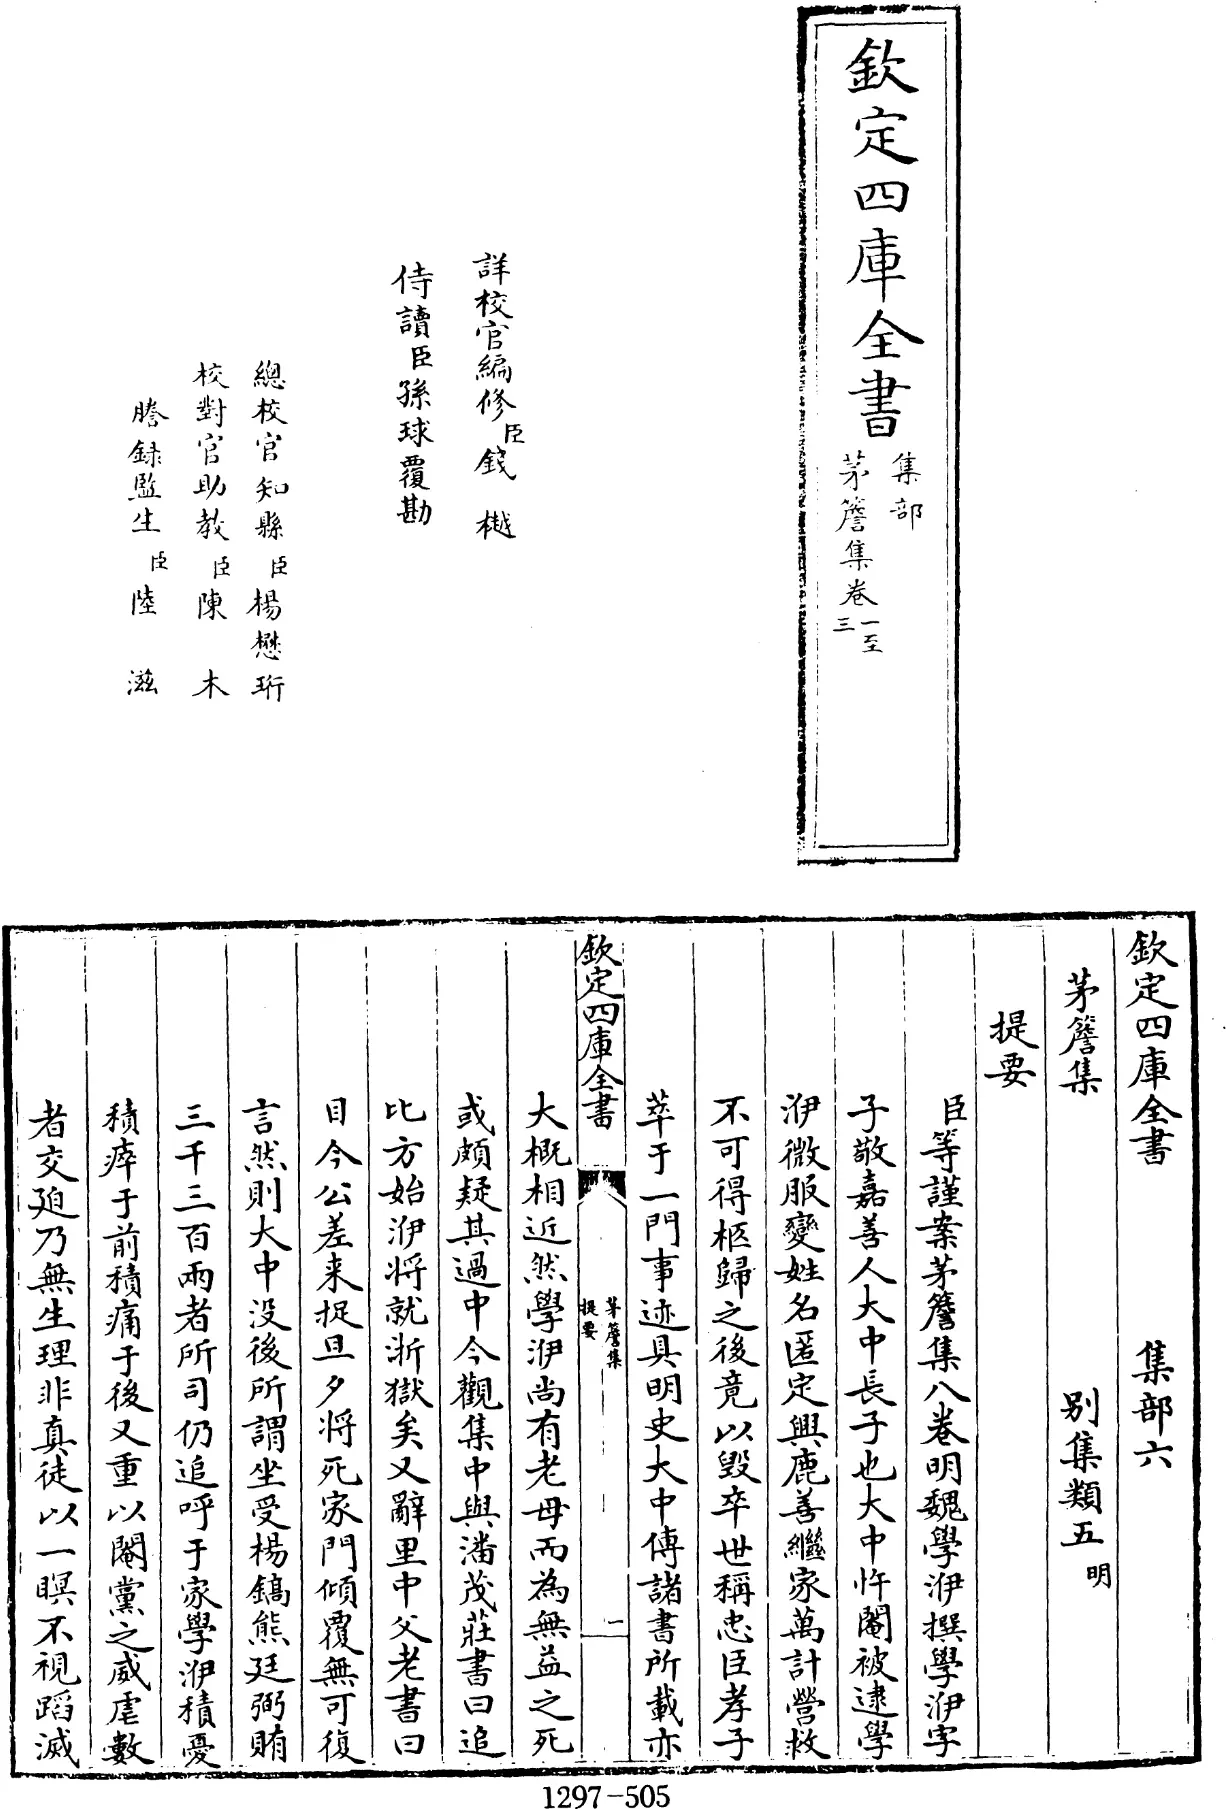 欽定四庫全書
集部
茅簷集卷一至三
詳校官編修臣錢樾
侍讀臣孫球覆勘
總校官知縣臣楊懋珩
校對官助教臣陳木
謄録監生臣陸滋
欽定四庫全書 集部六
茅簷集 别集類五明
提要
臣等謹案茅簷集八卷明魏學洢撰學洢字
子敬嘉善人大中長子也大中忤閹被逮學
洢微服變姓名匿定興鹿善繼家萬計營救
不可得柩歸之後竟以毀卒世稱忠臣孝子
萃于一門事迹具明史大中傳諸書所載亦
欽定四庫全書 茅簷集提要 一
大概相近然學洢尚有老母而為無益之死
或頗疑其過中今觀集中與潘茂莊書曰追
比方始洢将就浙獄矣又辭里中父老書曰
目今公差来捉旦夕将死家門傾覆無可復
言然則大中没後所謂坐受楊鎬熊廷弼賄
三千三百兩者所司仍追呼于家學洢積憂
積瘁于前積痛于後又重以閹黨之威虐數
者交廹乃無生理非真徒以一瞑不視蹈滅
1297-505